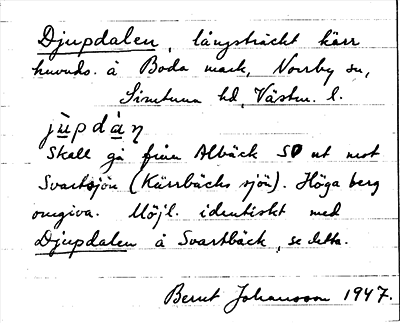 Djupdalen, långsträckt kärr
huvuds. å Boda mark, Norrby sn,
Simtuna hd, Västm. l.
jùpdàƞ
Skall gå från Albäck SO ut mot
Svartsjön (Kärrbäcks sjön). Höga berg
omgiva. Möjl. identiskt med
Djupdalen å Svartbäck, se detta.
Bernt Johansson 1947.